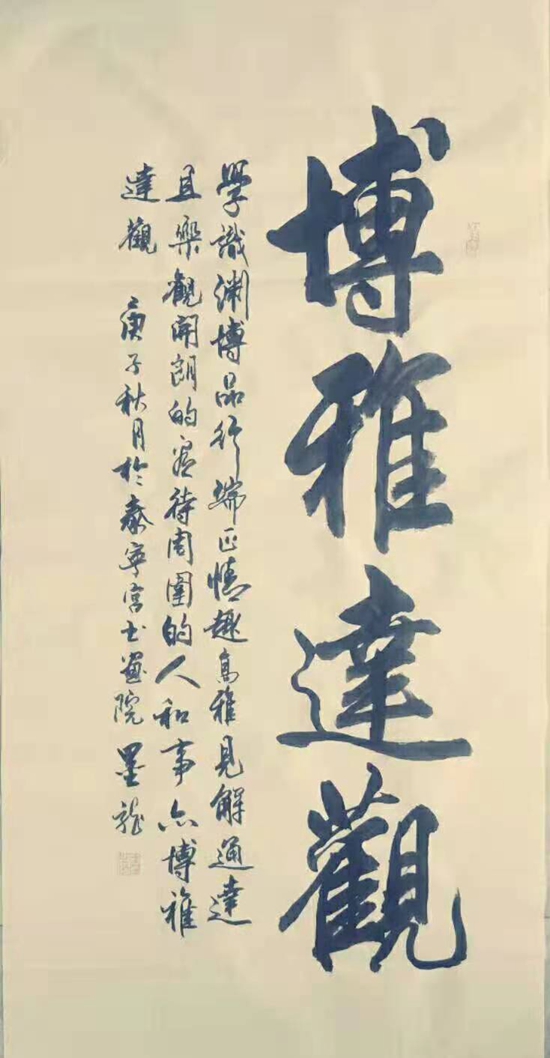 博雅達觀
學識淵博品行端正情趣高雅見解通達
且樂觀開朗的看待周圍的人和事亦博雅
達觀 庚子秋月於泰寧宮书畫院 墨龍